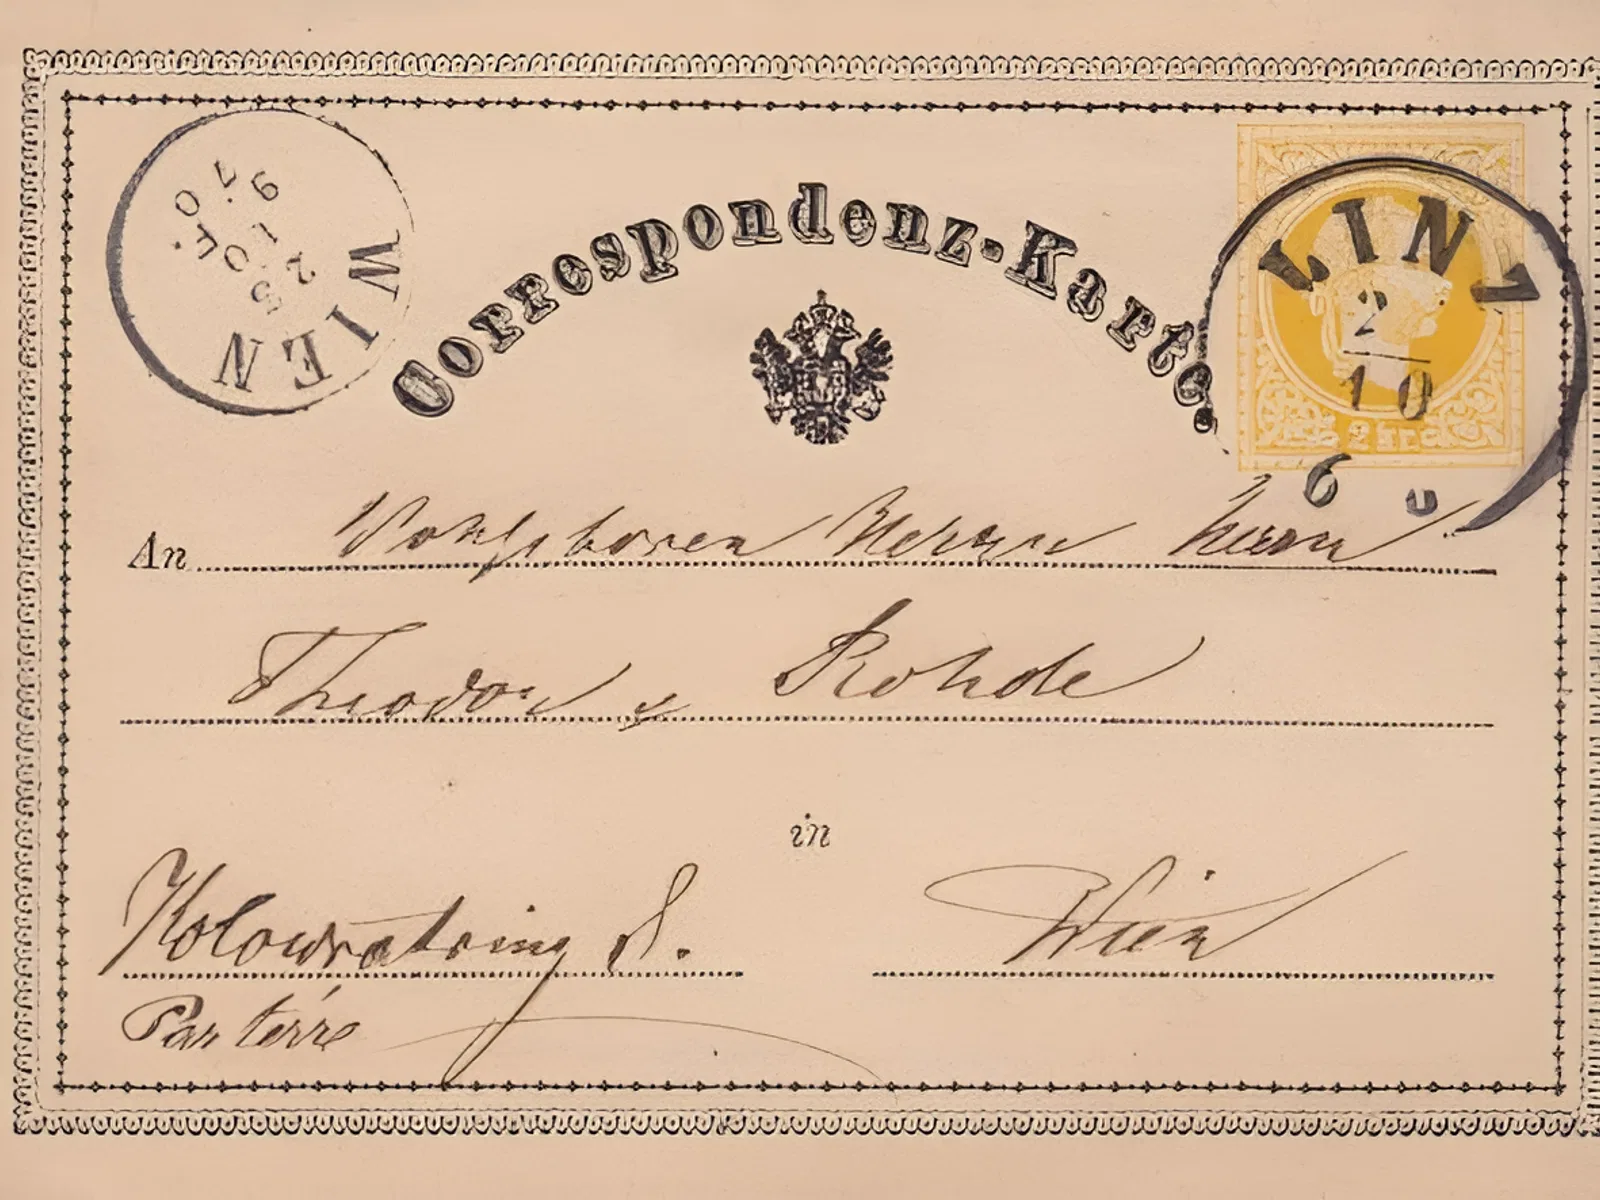 Correspondenz-Karte.
WIEN
LINZ
2
10
6 U
2 kr
An Wohlgeboren Herrn Herrn
Theodor v Rohde
in
Kolowratring 8. Wien
Parterre